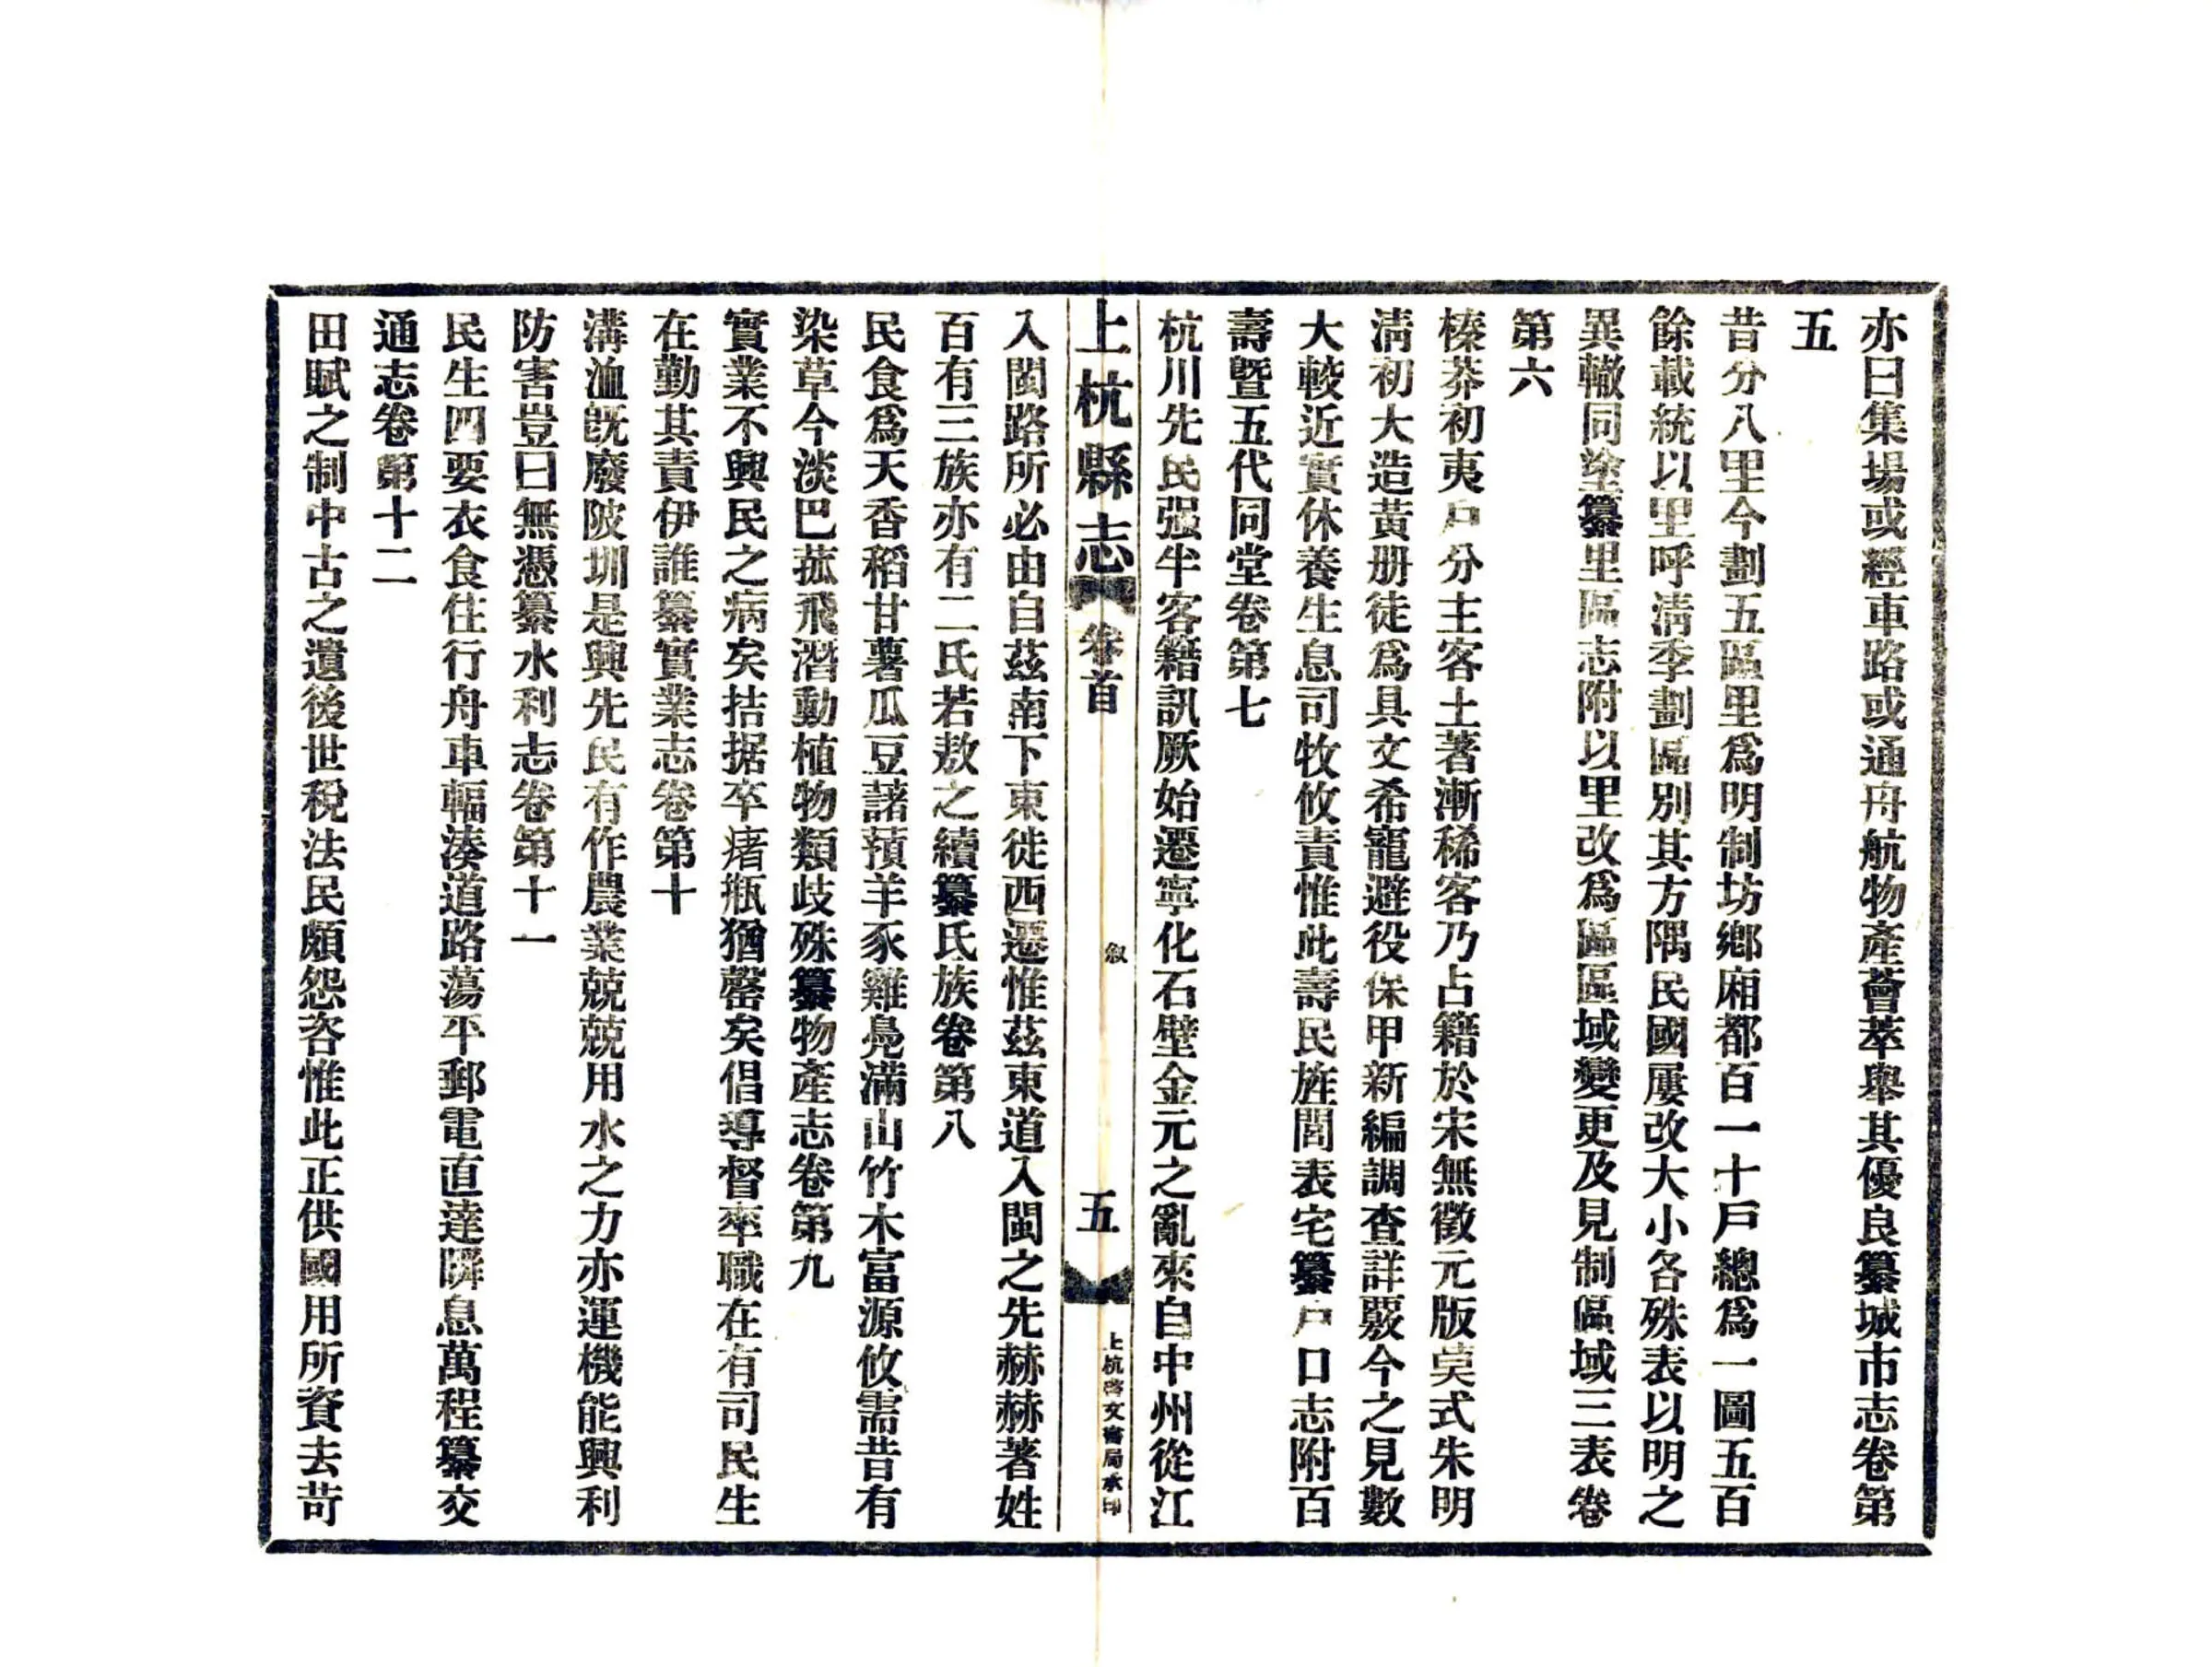 亦曰集場或經車路或通舟航物產薈萃舉其優良纂城市志卷第
五
昔分八里今劃五區里爲明制坊鄉廂都百一十戶總爲一圖五百
餘載統以里呼淸季劃區別其方隅民國屢改大小各殊表以明之
異轍同塗纂里區志附以里改爲區區域變更及見制區域三表卷
第六
榛莽初夷戶分主客土著漸稀客乃占籍於宋無徵元版莫式朱明
淸初大造黃册徒爲具文希寵避役保甲新編調查詳覈今之見數
大較近實休養生息司牧攸責惟此壽民旌閭表宅纂戶口志附百
壽暨五代同堂卷第七
杭川先民强半客籍訊厥始遷寧化石壁金元之亂來自中州從江
上杭縣志 卷首 叙 五 上杭啓文書局承印
入閩路所必由自茲南下東徙西遷惟茲東道入閩之先赫赫著姓
百有三族亦有二氏若敖之續纂氏族卷第八
民食爲天香稻甘薯瓜豆諸蓣羊豕雞鳧滿山竹木富源攸需昔有
染草今淡巴菰飛潛動植物類歧殊纂物產志卷第九
實業不興民之病矣拮据卒瘏瓶猶罄矣倡導督率職在有司民生
在勤其責伊誰纂實業志卷第十
溝洫旣廢陂圳是興先民有作農業兢兢用水之力亦運機能興利
防害豈曰無憑纂水利志卷第十一
民生四要衣食住行舟車輻湊道路蕩平郵電直達瞬息萬程纂交
通志卷第十二
田賦之制中古之遺後世稅法民頗怨咨惟此正供國用所資去苛